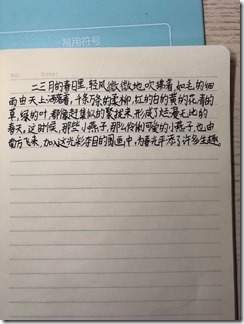 常用符号
No.
Date
二三月的春日里,轻风微微地吹拂着,如毛的细
雨由天上洒落着,千条万条的柔柳,红的白的黄的花,青的
草,绿的叶,都像赶集似的聚拢来,形成了烂漫无比的
春天。这时候,那些小燕子,那么伶俐可爱的小燕子,也由
南方飞来,加入这光彩夺目的图画中,为春光平添了许多生趣。